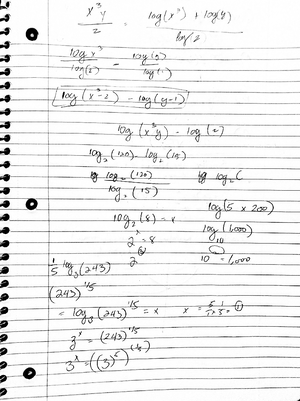 x³y / 2 = log(x³) + log(y) / log 2
log x³ / log(2) - log(y) / log(1)
log(x³-2) - log(y-1)
log(x³y) - log(2)
log₂(120) - log₂(15)
log₂(120) / log₂(15) log₂(
log₂(8) = x log(5 x 200)
2ˣ = 8 log₁₀(1,000)
2 10 = 1,000
1/5 log₃(243)
(243)^1/5
= log₃(243)^1/5 = x
3ˣ = (243)^1/5
3ˣ = ((3)⁵)^(1/5)